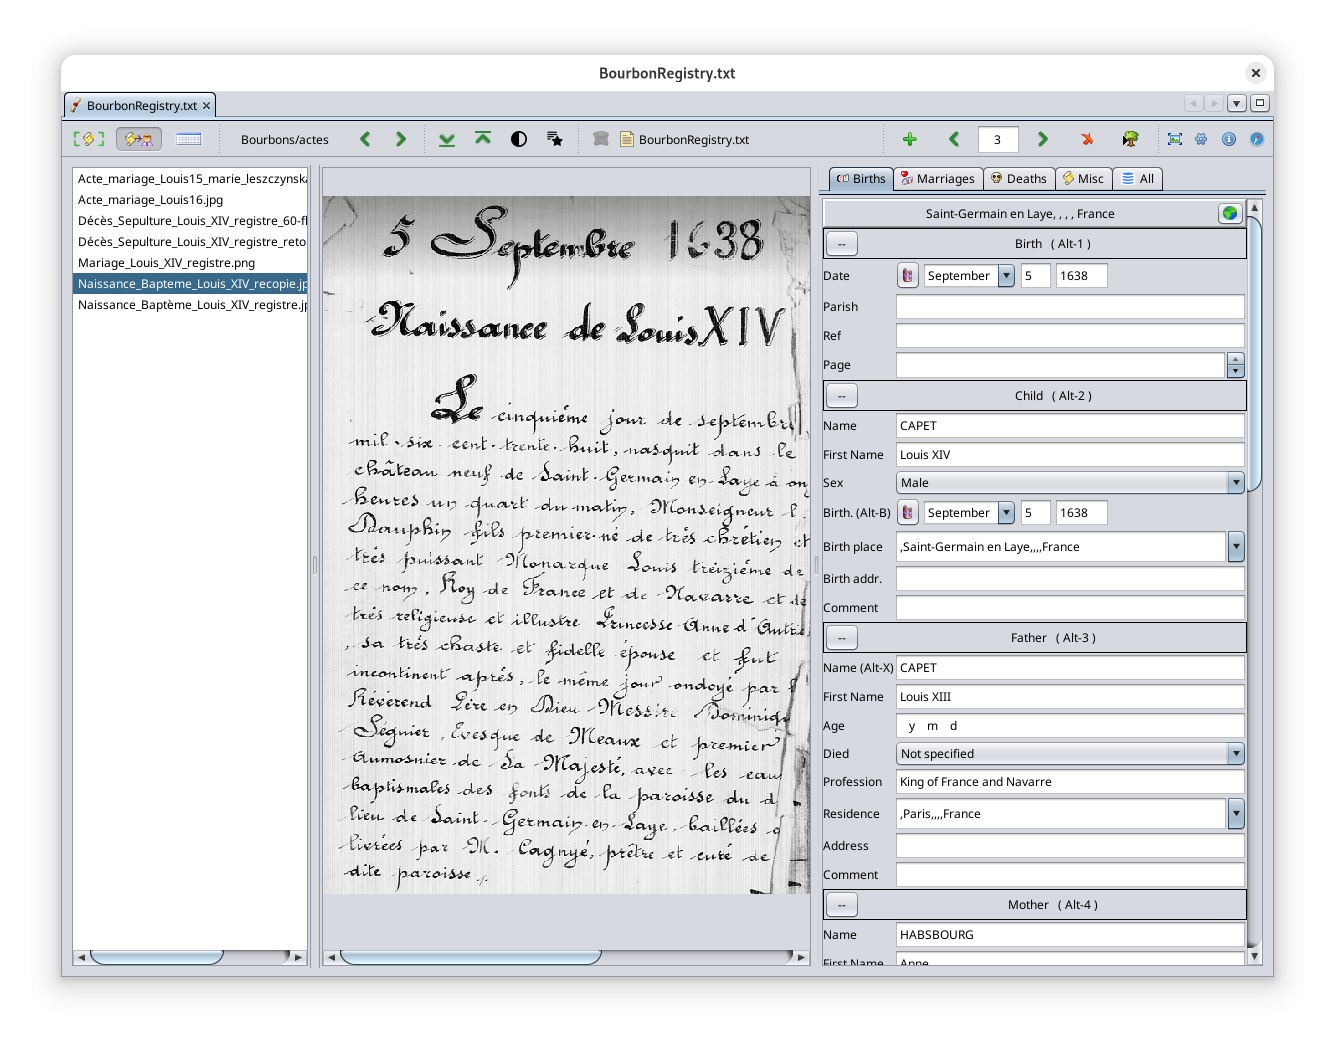 BourbonRegistry.txt
BourbonRegistry.txt
Bourbons/actes
BourbonRegistry.txt
3
Acte_mariage_Louis15_marie_leszczynska
Acte_mariage_Louis16.jpg
Décès_Sepulture_Louis_XIV_registre_60-fl
Décès_Sepulture_Louis_XIV_registre_reto
Mariage_Louis_XIV_registre.png
Naissance_Bapteme_Louis_XIV_recopie.jp
Naissance_Baptème_Louis_XIV_registre.jp
5 Septembre 1638
Naissance de Louis XIV
Le cinquiéme jour de septembr
mil-six cent-trente-huit, nasquit dans le
château neuf de Saint-Germain en-Laye à on
heures un quart du matin, Monseigneur l
Dauphin fils premier-né de trés chrétien et
trés puissant Monarque Louis treiziéme de
ce nom, Roy de France et de Navarre et de
trés religieuse et illustre Princesse Anne d'Autri
, sa trés chaste et fidelle épouse et fut
incontinent aprés, le même jour ondoyé par
Révérend Pére en Dieu Messire Dominiq
Ségnier, Evesque de Meaux et premier
Aumosnier de Sa Majesté, avec les eau
baptismales des fonts de la paroisse du d
lieu de Saint-Germain-en-Laye, baillées
livrées par M. Cagnyé, prêtre et curé de
dite paroisse.
Births
Marriages
Deaths
Misc
All
Saint-Germain en Laye, , , , France
-- Birth ( Alt-1 )
Date September 5 1638
Parish
Ref
Page
-- Child ( Alt-2 )
Name CAPET
First Name Louis XIV
Sex Male
Birth. (Alt-B) September 5 1638
Birth place ,Saint-Germain en Laye,,,,France
Birth addr.
Comment
-- Father ( Alt-3 )
Name (Alt-X) CAPET
First Name Louis XIII
Age y m d
Died Not specified
Profession King of France and Navarre
Residence ,Paris,,,,France
Address
Comment
-- Mother ( Alt-4 )
Name HABSBOURG
First Name Anne